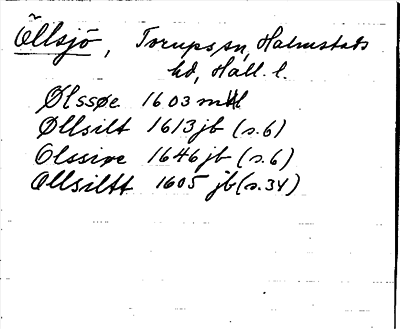 Öllsjö, Torups sn, Halmstads
hd, Hall. l.
Ølssøe 1603 mtl
Øllsilt 1613 jb (s.6)
Olssiøe 1646 jb (s.6)
Ollsiltt 1605 jb (s.34)